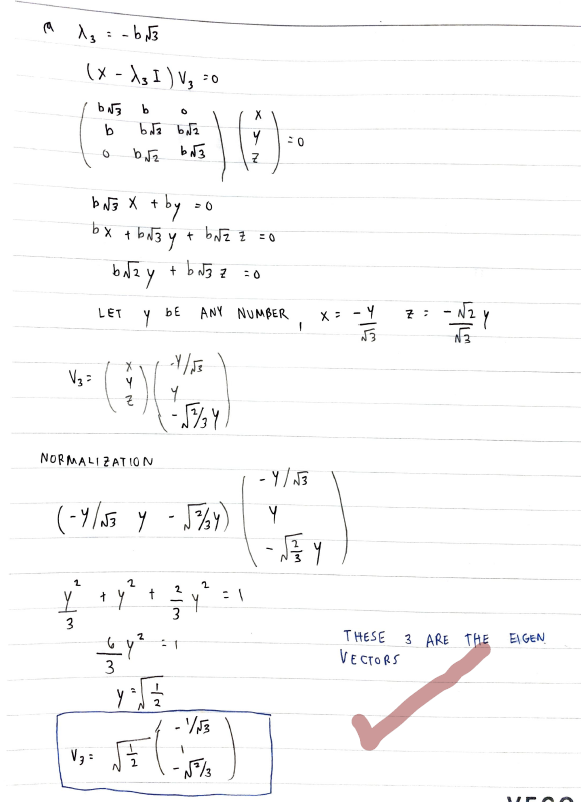 λ₃ = -b√3
(X - λ₃ I) V₃ = 0
( b√3 b 0 ; b b√3 b√2 ; 0 b√2 b√3 ) ( x ; y ; z ) = 0
b√3 x + by = 0
bx + b√3 y + b√2 z = 0
b√2 y + b√3 z = 0
LET y BE ANY NUMBER, x = -y/√3 z = -√2/√3 y
V₃ = ( x ; y ; z ) ( -y/√3 ; y ; -√2/3 y )
NORMALIZATION
( -y/√3 y -√2/3 y ) ( -y/√3 ; y ; -√(2/3) y )
y²/3 + y² + 2/3 y² = 1
6/3 y² = 1
THESE 3 ARE THE EIGEN
VECTORS
y = √(1/2)
V₃ = √(1/2) ( -1/√3 ; 1 ; -√2/3 )